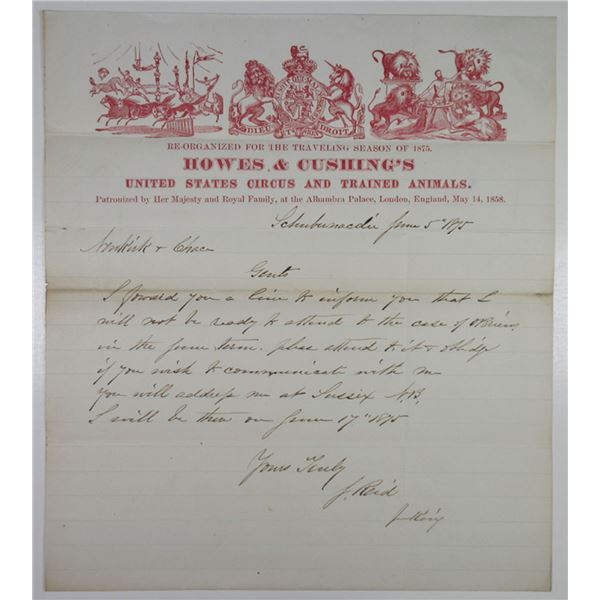 DIEU ET MON DROIT
RE-ORGANIZED FOR THE TRAVELING SEASON OF 1875.
HOWES & CUSHING'S
UNITED STATES CIRCUS AND TRAINED ANIMALS.
Patronized by Her Majesty and Royal Family, at the Alhambra Palace, London, England, May 14, 1858.
June 5th 1875
Newkirk & Chace
Gents
I foward you a line to inform you that I
will not be ready to attend to the case of O'Briens
in the June term. pleas attend to it & oblidge
if you wish to communicate with me
you will address me at Sussex N.B.
I will be then on June 17th 1875
Yours Truly
J. Reid